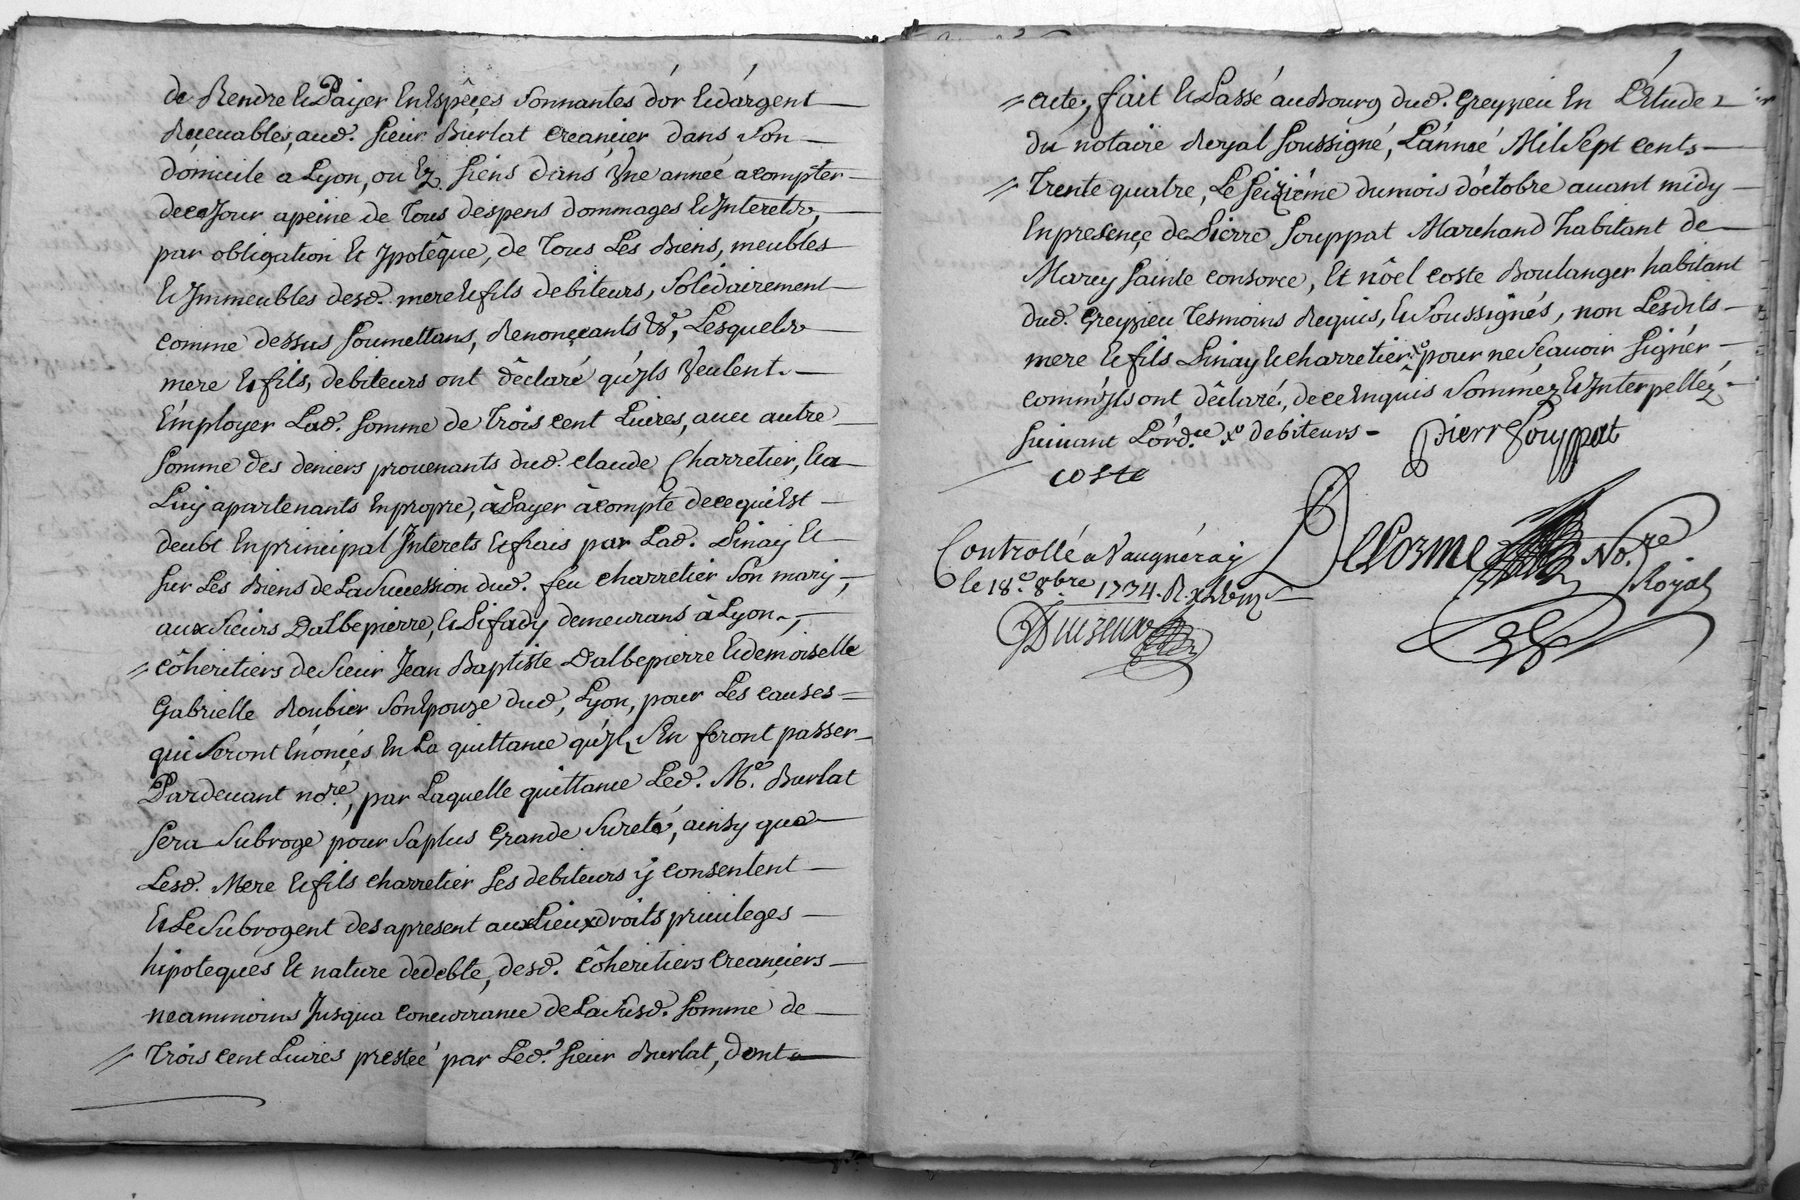 de Rendre et Paÿer en Espêçes sonnantes d'or et d'argent
Receuables, aud. sieur Burlat creançier dans son
domicile a Lyon, ou ez siens dans Vne année a compter
de ce Jour a peine de Tous despens dommages et Interets,
par obligation et ypotêque, de Tous Les Biens, meubles
et Immeubles desd. mere et fils debiteurs, solidairement
comme dessus soumettans, Renonçeants &c., Lesquels
mere et fils, debiteurs ont dêclaré qu'ils Veulent
Employer Lad. somme de Trois cent Livres, auec autre
somme des deniers prouenants dud. claude Charretier, et a
Luy apartenants en propre, à Payer à compte de ce qui Est
deubt en principal Interets et frais par Lad. Pinaÿ et
sur Les Biens de La succession dud. feu charretier son mary,
aux sieurs Dalbepierre, et Sifady demeurans à Lyon,
côheritiers de sieur Jean Baptiste Dalbepierre et demoiselle
Gabrielle Roubier son Epouze dud. Lyon, pour Les causes
qui seront Enonçés En La quittance qu'ils s'En feront passer
Pardeuant no.re, par Laquelle quittance Led. Me. Burlat
sera subrogé pour sa plus Grande sureté, ainsy que
Lesd. Mere et fils charretier ses debiteurs ÿ consentent
et Le subrogent des a present aux Lieux droits priuileges
hipoteques et nature de debte, desd. côheritiers creançiers
neammoins Jusqua concurrance de La susd. somme de
Trois cent Livres prestée par Led. sieur Burlat, dont
acte, fait et Passé au Bourg dud. Greyzieu En L'Etude
du notaire Royal soussigné, L'année Mil Sept cents
Trente quatre, Le seizième du mois d'octobre auant midy
En presençe de Pierre Souppat Marchand habitant de
Marcy sainte consorce, et nôel coste Boulanger habitant
dud. Greyzieu Tesmoins Requis, et soussignés, non Lesdits
mere et fils Pinay et charretier x pour ne sçauoir signér
comm'ils ont dêclaré, de ce Enquis somméz et Interpellez
suiuant L'ord.ce x debiteurs
Pierre Souppat
coste
Delorme No.re Royal
Controllé a Vaugnéraÿ
le 18.e 8bre 1734. R.